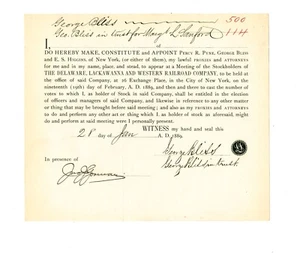 George Bliss 500
Geo. Bliss in trust for Mary L. Sanford 444
I,
DO HEREBY MAKE, CONSTITUTE and APPOINT PERCY R. PYNE, GEORGE BLISS
and E. S. HIGGINS, of New York, (or either of them), my lawful PROXIES and ATTORNEYS
for me and in my name, place, and stead, to appear at a Meeting of the Stockholders of
THE DELAWARE, LACKAWANNA AND WESTERN RAILROAD COMPANY, to be held
at the office of said Company, at 26 Exchange Place, in the City of New York, on the
nineteenth (19th) day of February, A. D. 1889, and then and there to cast the number of
votes which I, as holder of Stock in said Company, shall be entitled in the election
of officers and managers of said Company, and likewise in reference to any other matter
or thing that may be brought before said meeting; and also as my PROXIES and ATTORNEYS
to do and perform any other act or thing which I, as holder of stock as aforesaid, might
do and perform at said meeting were I present in person.
WITNESS my hand and seal this
28 day of Jan A. D. 1889.
George Bliss
George Bliss in trust
In presence of